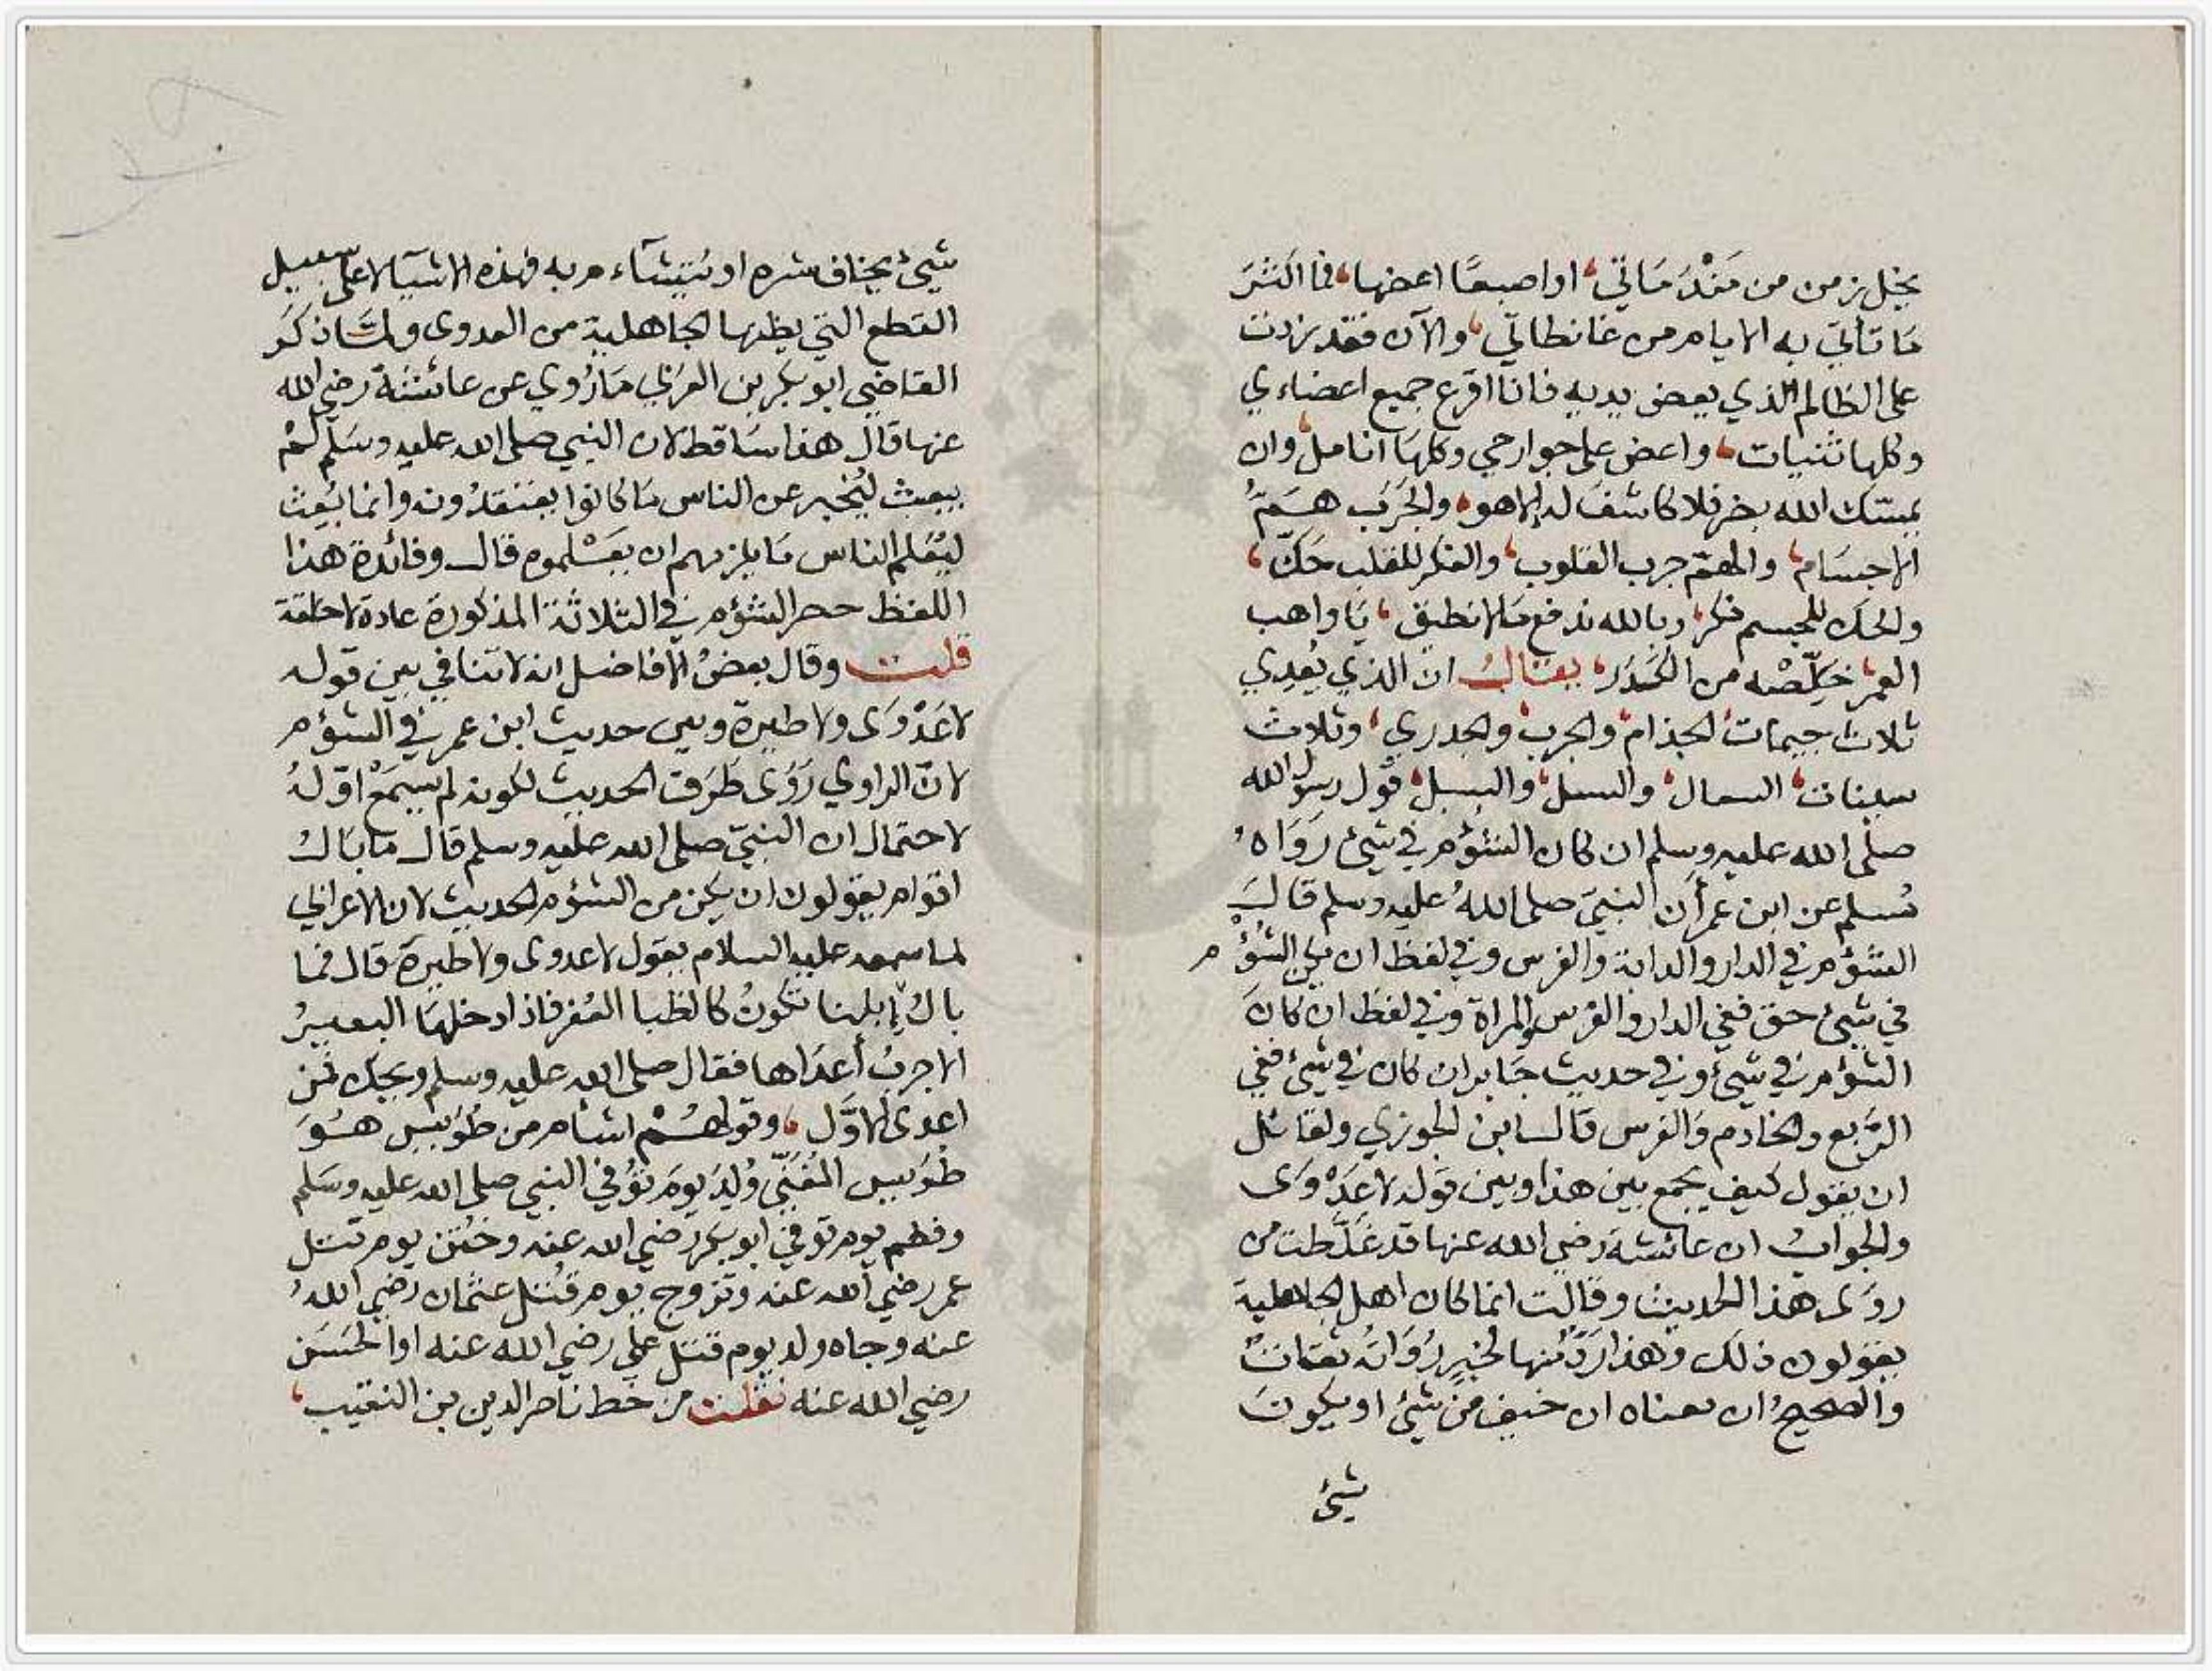 يخل زمن من مَنْدَمَاتي، او اصبعًا اعضها، فما اكثرَ
مَا تأتي به الايام من غانطاتي، والآن فقد زدت
على الظالم الذي يعض يديه فانا اقرع جميع اعضاءي
وكلها ثنيات، واعض على جوارحي وكلهَا انامل، وان
يمسسك الله بضر فلا كاشف له الا هو، والجَرَب هَمّ
الاجسَام، والهمّ جرب القلوب، والفكر للقلب حَكّ،
والحك للجسم فكر، وبالله ندفع مَالا نطيق، يَا واهب
العمر، خَلِّصْه من الكَدَر، يقال ان الذي يُعدِي
ثلاث جيمات، الجذام، والجرب، والجدري، وثلاث
سينات، السعال، والسل، والسبل، قول رسول الله
صلى الله عليه وسلم ان كان الشؤم في شيئ رَوَاهُ
مُسلم عن ابن عمر أن النبيّ صلى اللهُ عليه وسلم قال
الشؤم في الدار والدابة والفرس وفي لفظ ان يكن الشُؤم
في شيئ حق ففي الدار والفرس والمراة وفي لفظ ان كان
الشؤم في شيئ وفي حديث جَابر ان كان في شيئ ففي
الرَّبع والخادم وَالفرس قال ابن الجوزي ولقائل
ان يقول كيف يجمع بين هذا وبين قوله لا عَدْوَى
والجَوابُ ان عائشة رضي الله عنها قد غَلّطت من
روَى هذا الحديث وقالت انما كان اهل الجاهلية
يقولون ذلك وهذا رَدٌّ منها لخبرٍ رُوَاتُه ثقات
والصحيحُ ان معناه ان خيف من شيئ او يكون
شيئ
شيئ يخاف شره او يُتشاءم به فهذه الاشيآ لا على سبيل
القطع التي يظنها الجاهلية من العدوى ولمّا ذكَر
القاضي ابو بكر بن العَرَبي مَا رُوي عن عائشَة رضي الله
عنها قال هذا سَاقط لان النبي صلى الله عليه وسَلم لمْ
يبعث ليُخبر عن الناس مَا كانوا يعتقدُونه وانما بُعِث
ليُعَلم الناس مَا يلزمهم ان يَعْلموه قال وفائدة هذا
اللفظ حصر الشؤم في الثلاثة المذكورة عادة لا خلقة
قلت وقال بعضُ الافاضل انه لا تنافي بين قوله
لا عَدْوَى ولا طيرة وبين حديث ابن عمر في الشؤم
لانّ الراوي رَوَى طَرَف الحديث لكونه لم يسمَعْ اوّلهُ
لاحتمال ان النبيّ صلى الله عليه وسلم قال مَا بَالُ
اقوام يقولون ان يكن من الشؤم الحديث لان الاعرابي
لما سمعه عليه السلام يقول لا عدوى ولا طيرة قال فما
بال إبلنا تكونُ كالظبا العُفر فاذا دخلهَا البعيرُ
الاجربُ أعدَاها فقال صلى الله عليه وسلم ويحك فمن
اعدى الاوَّل، وقولهُمْ اشأم من طُوَيس هُوَ
طُوَيس المُغَنّي وُلِدَ يومَ تُوُفي النبي صلى الله عليه وسَلم
وفطم يوم توفي ابو بكر رضي الله عنه وخُتن يوم قتل
عمر رضي الله عنه وتزوج يوم قُتل عثمان رضي اللهُ
عنه وجاه ولد يوم قتل عليّ رضي الله عنه او الحَسَن
رضي الله عنه نقلت من خط ناصر الدين بن النقيب،